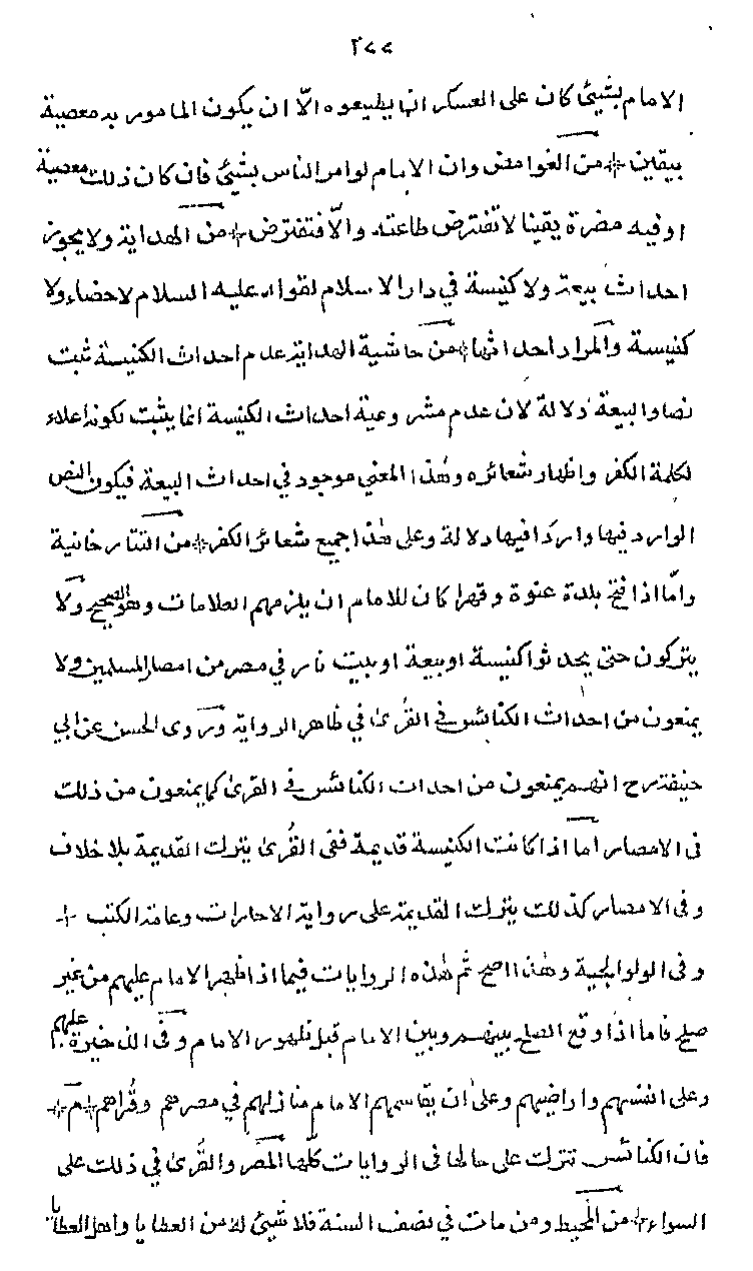 ٢٧٧
الامام بشيئ كان على العسكر ان يطيعوه الّا ان يكون المامور به معصية
بيقين * من الغوامض وان الامام لوامر الناس بشيئ فان كان ذلك معصية
او فيه مضرة يقينا لا تفترض طاعته والّا فتفترض * من الهداية ولا يجوز
احداث بيعة ولا كنيسة في دار الاسلام لقوله عليه السلام لا خصاء ولا
كنيسة والمراد احداثها * من حاشية الهداية عدم احداث الكنيسة ثبت
نصا والبيعة دلالة لان عدم مشروعية احداث الكنيسة انما يثبت لكونه اعلاء
لكلمة الكفر واظهار شعائره وهذا المعنى موجود في احداث البيعة فيكون النص
الوارد فيها واردًا فيها دلالة وعلى هذا جميع شعائر الكفر * من التتار خانية
وامّا اذا فتح بلدة عنوة وقهرا كان للامام ان يلزمهم العلامات وهو الصحيح ولا
يتركون حتى يحدثوا كنيسة او بيعة او بيت نار في مصر من امصار المسلمين ولا
يمنعون من احداث الكنائس في القُرىٰ في ظاهر الرواية وروى الحسن عن ابي
حنيفة رح انهم يمنعون من احداث الكنائس في القرىٰ كما يمنعون من ذلك
في الامصار اما اذا كانت الكنيسة قديمة ففى القُرىٰ يترك القديمة بلا خلاف
وفى الامصار كذلك يترك القديمة على رواية الاجارات وعامة الكتب *
وفى الولوالجية وهذا اصح ثم هذه الروايات فيما اذا ظهر الامام عليهم من غير
صلح فاما اذا وقع الصلح بينهم وبين الامام قبل ظهور الامام وفى الذخيرة عليهم
وعلى انفسهم واراضيهم وعلىٰ ان يقاسمهم الامام منازلهم في مصرهم وقُراهم * م *
فان الكنائس تترك على حالها فى الروايات كلّها المصر والقُرىٰ في ذلك على
السواء * من المحيط ومن مات في نصف السنة فلا شيئ له من العطايا واهل العطايا